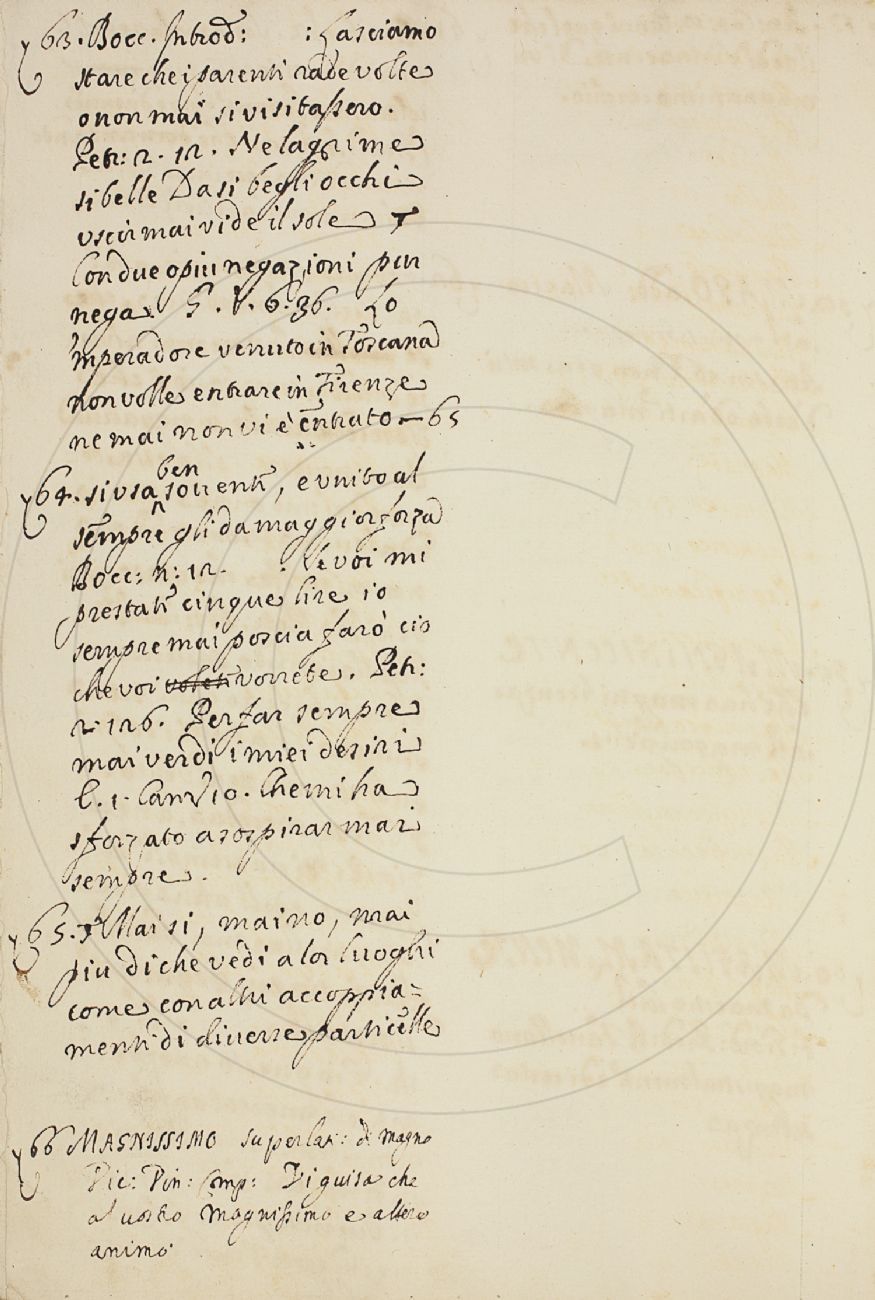 63. Bocc. Introd: : Lasciamo
stare che i parenti rade volte
o non mai si visitassero.
Petr: 2. 12. Ne lagrime
si belle Da si begli occhi
uscir mai vide il sole
Con due o piu negazioni pur
nega. G. V. 6. 36. Lo
'mperadore venuto in Toscana
non volle entrare in Firenze
ne mai non vi è entrato — 65
64. si usa ben sovente, e unito al
sempre gli da maggior forza
Bocc: n: 12. : Se voi mi
prestate cinque lire io
sempre mai poscia farò cio
che voi voleti vorrete. Petr:
2. 126. Per far sempre
mai verdi i miei desiri
E. 1. Canz 10. Che mi ha
sforzato a sospirar mai
sempre.
65. Mai si, mai no, mai
piu di che vedi a lor luoghi
come con altri accoppia=
menti di diverse particelle
66 MAGNISSIMO superlat: di magno
Vic: Pin: Comp: Di guisa che
al vostro magnissimo e altero
animo